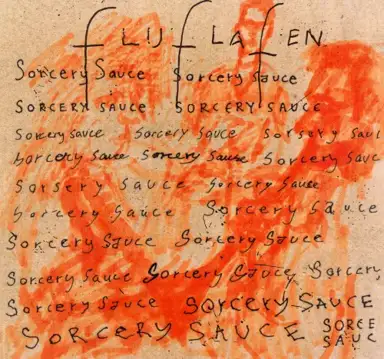 fLIJfLAfEN
Sorcery Sauce Sorcery Sauce
SORCERY SAUCE SORCERY SAUCE
Sorcery Sauce Sorcery Sauce Sorsery Sauc
Sorcery Sauce Sorcery Sause Sorcery Sauc
Sorsery Sauce Sorcery Sause
Sorcery Sauce Sorcery Sauce
Sorcery Sauce Sorcery Sauce
Sorcery Sauce Sorcery Sauce Sorcery
Sorcery Sauce Sorcery SAUCE
SORCERY SAUCE SORCE
SAUC